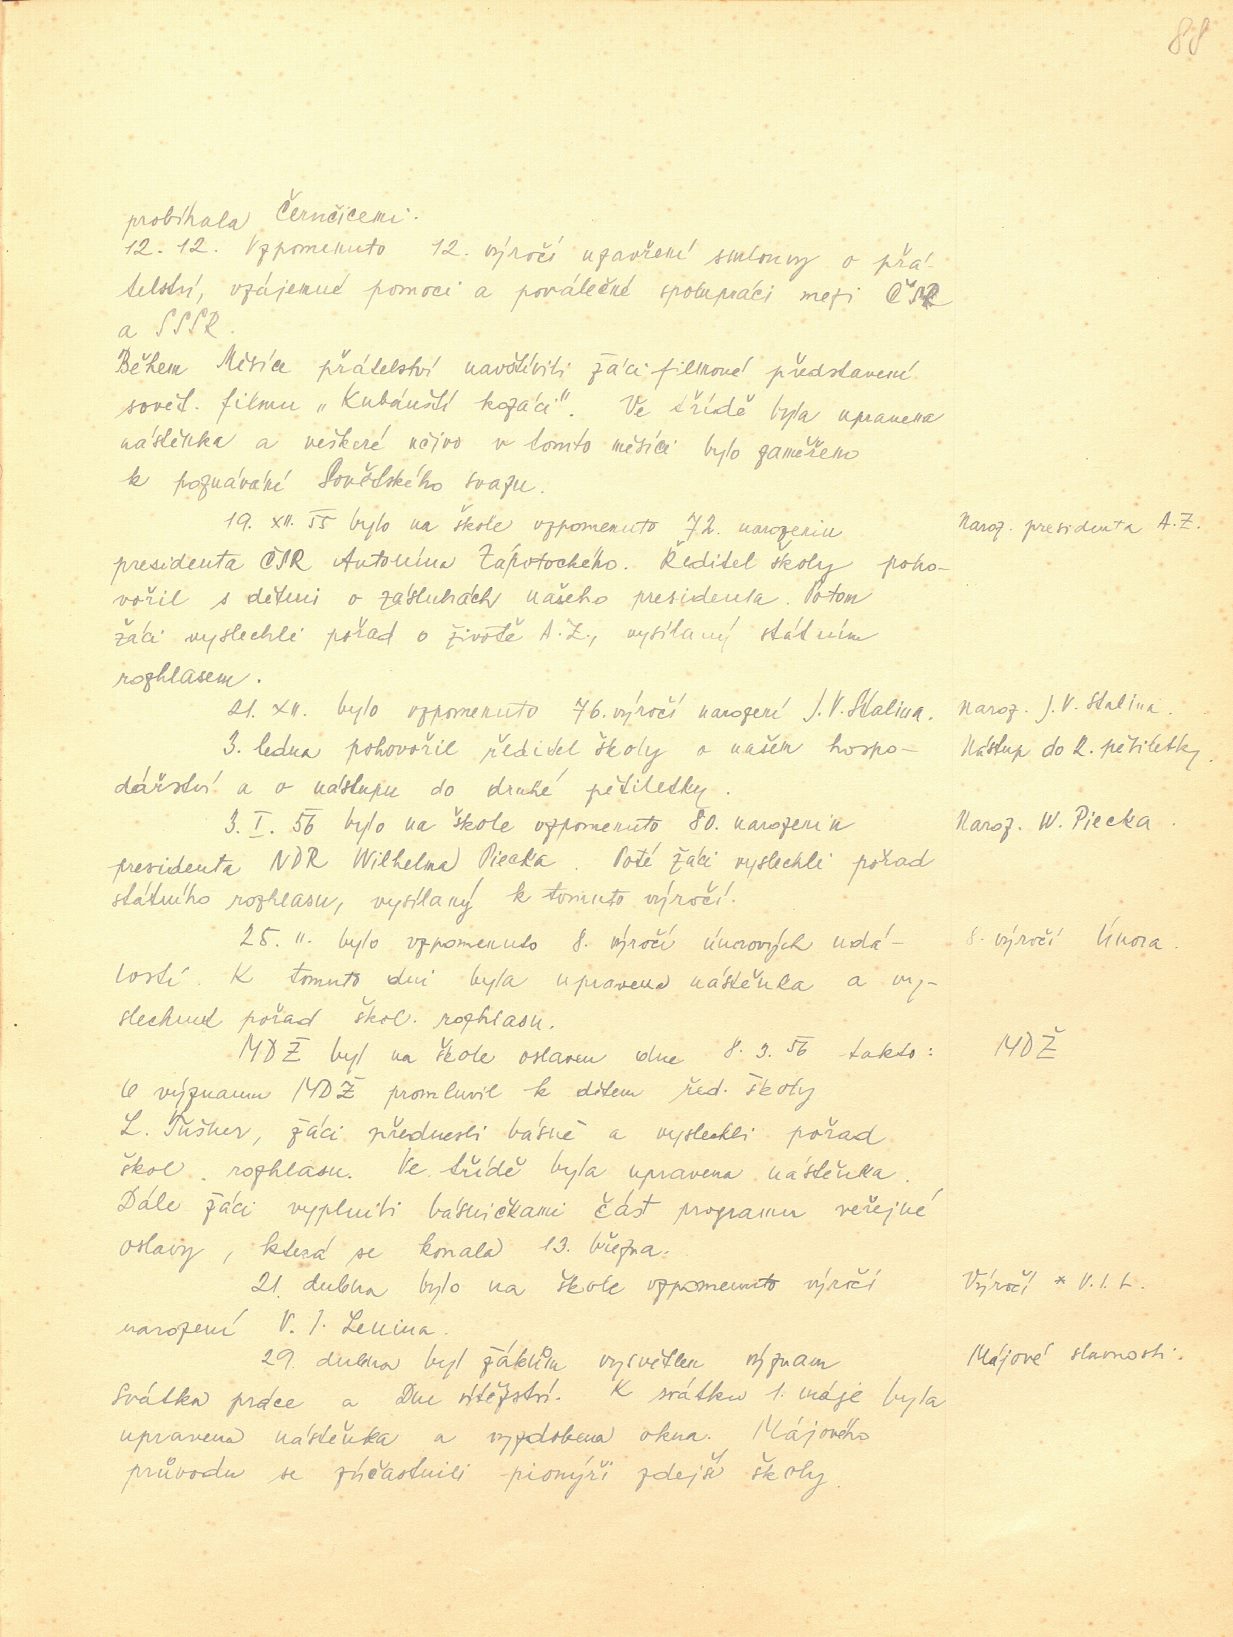 88
probíhala Černčicemi.
12. 12. Vzpomenuto 12. výročí uzavření smlouvy o přá-
telství, vzájemné pomoci a poválečné spolupráci mezi ČSR
a SSSR.
Během Měsíce přátelství navštívili žáci filmové představení
sovět. filmu „Kubánští kozáci". Ve třídě byla upravena
nástěnka a veškeré učivo v tomto měsíci bylo zaměřeno
k poznávání Sovětského svazu.
19. XII. 55 bylo na škole vzpomenuto 72. narozenin
Naroz. presidenta A.Z.
presidenta ČSR Antonína Zápotockého. Ředitel školy poho-
vořil s dětmi o zásluhách našeho presidenta. Potom
žáci vyslechli pořad o životě A.Z., vysílaný státním
rozhlasem.
21. XII. bylo vzpomenuto 76. výročí narození J.V. Stalina.
Naroz. J.V. Stalina.
3. ledna pohovořil ředitel školy o našem hospo-
Nástup do 2. pětiletky.
dářství a o nástupu do druhé pětiletky.
3. I. 56 bylo na škole vzpomenuto 80. narozenin
Naroz. W. Piecka.
presidenta NDR Wilhelma Piecka. Poté žáci vyslechli pořad
státního rozhlasu, vysílaný k tomuto výročí.
25. II. bylo vzpomenuto 8. výročí únorových udá-
8. výročí Února.
lostí. K tomuto dni byla upravena nástěnka a vy-
slechnut pořad škol. rozhlasu.
MDŽ byl na škole oslaven dne 8. 3. 56 takto:
MDŽ
O významu MDŽ promluvil k dětem řed. školy
L. Tušher, žáci přednesli básně a vyslechli pořad
škol. rozhlasu. Ve třídě byla upravena nástěnka.
Dále žáci vyplnili básničkami část programu veřejné
oslavy, která se konala 13. března.
21. dubna bylo na škole vzpomenuto výročí
Výročí * V.I.L.
narození V. I. Lenina.
29. dubna byl žákům vysvětlen význam
Májové slavnosti.
Svátku práce a Dne vítězství. K svátku 1. máje byla
upravena nástěnka a vyzdobena okna. Májového
průvodu se zúčastnili pionýři zdejší školy.